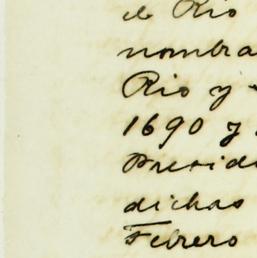 de Rio
nombra
Rio y
1690 y
Presid
dichas
Febrero